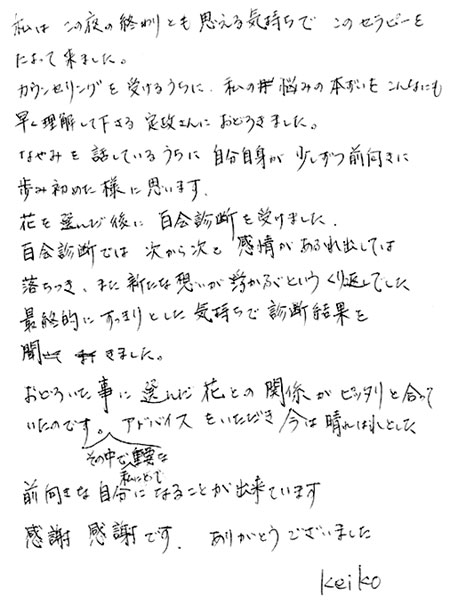 私は この夜の終わりとも思える気持ちで このセラピーを
たよって来ました。
カウンセリングを受けるうちに、私の悩みの本ずいをこんなにも
早く理解して下さる定政さんにおどろきました。
なやみを話しているうちに自分自身が少しずつ前向きに
歩み初めた様に思います.
花を選んだ後に百会診断を受けました.
百会診断では次から次と感情があふれ出しては
落ちつき、また新たな想いが浮かるぶというくり返しでした
最終的にすっきりとした気持ちで診断結果を
聞きました。
おどろいた事に選んだ花との関係がピッタリと合って
いたのです。アドバイスをいただき今は晴ればれとした
その中で重要な
私にとって
前向きな自分になることが出来ています
感謝 感謝です. ありがとうございました
keiko